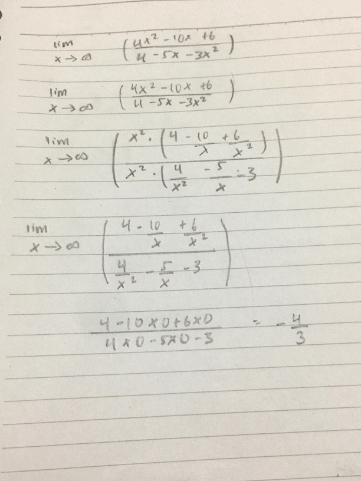 lim x→∞ (4x² -10x +6 / 4 -5x -3x²)
lim x→∞ (4x² -10x +6 / 4 -5x -3x²)
lim x→∞ (x² · (4 - 10/x + 6/x²) / x² · (4/x² - 5/x - 3))
lim x→∞ (4 - 10/x + 6/x² / 4/x² - 5/x - 3)
4-10×0+6×0 / 4×0-5×0-3 = - 4/3